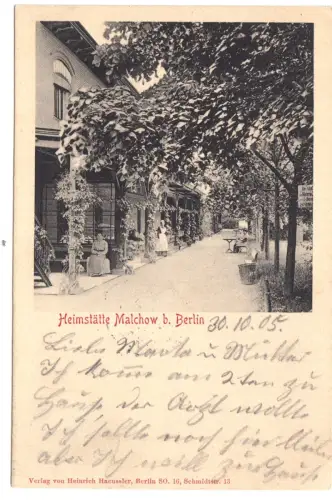 Heimstätte Malchow b. Berlin 30.10.05.
Liebe Marta u Mutter
Ich kome am 2ten zu
Hause der Arzt wollte
Ich sollte noch hier
aber Ich will zu Hause
Verlag von Heinrich Haeussler, Berlin SO. 16, Schmidstr. 13